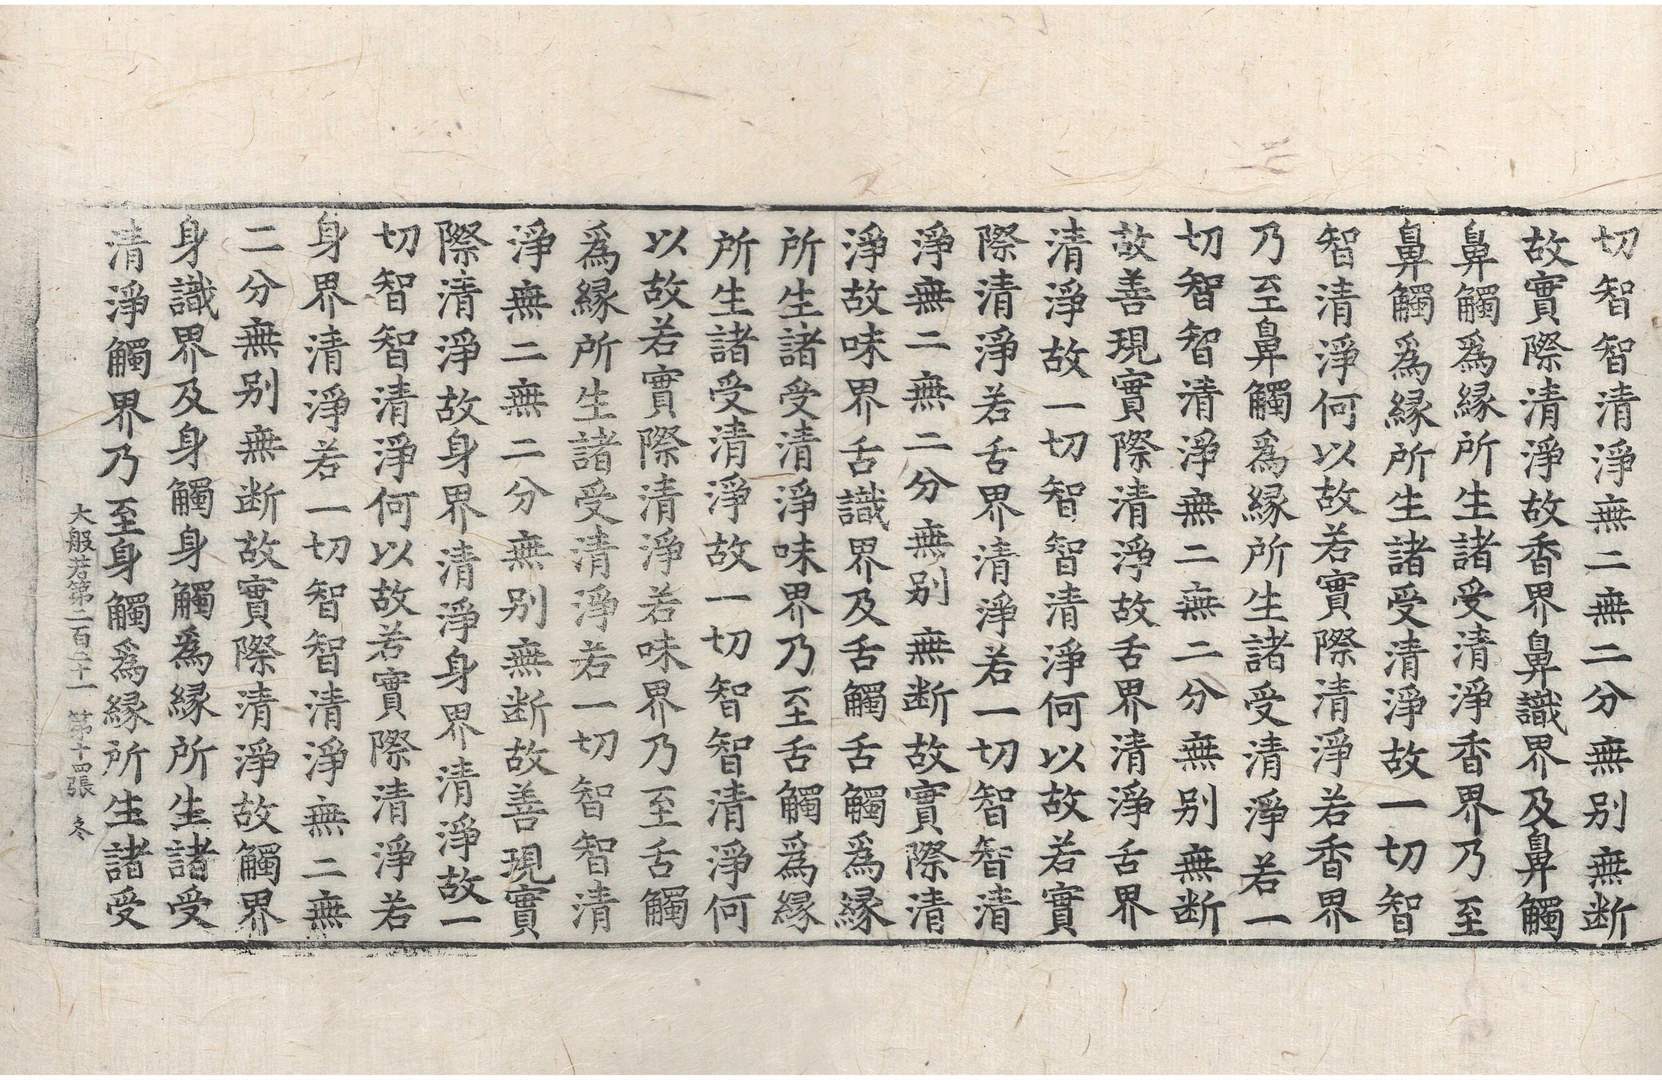 切智智清淨無二無二分無別無断
故實際清淨故香界鼻識界及鼻觸
鼻觸爲縁所生諸受清淨香界乃至
鼻觸爲縁所生諸受清淨故一切智
智清淨何以故若實際清淨若香界
乃至鼻觸爲縁所生諸受清淨若一
切智智清淨無二無二分無別無断
故善現實際清淨故舌界清淨舌界
清淨故一切智智清淨何以故若實
際清淨若舌界清淨若一切智智清
淨無二無二分無別無断故實際清
淨故味界舌識界及舌觸舌觸爲縁
所生諸受清淨味界乃至舌觸爲縁
所生諸受清淨故一切智智清淨何
以故若實際清淨若味界乃至舌觸
爲縁所生諸受清淨若一切智智清
淨無二無二分無別無断故善現實
際清淨故身界清淨身界清淨故一
切智智清淨何以故若實際清淨若
身界清淨若一切智智清淨無二無
二分無別無断故實際清淨故觸界
身識界及身觸身觸爲縁所生諸受
清淨觸界乃至身觸爲縁所生諸受
大般若第二百二十一 第十四張 冬